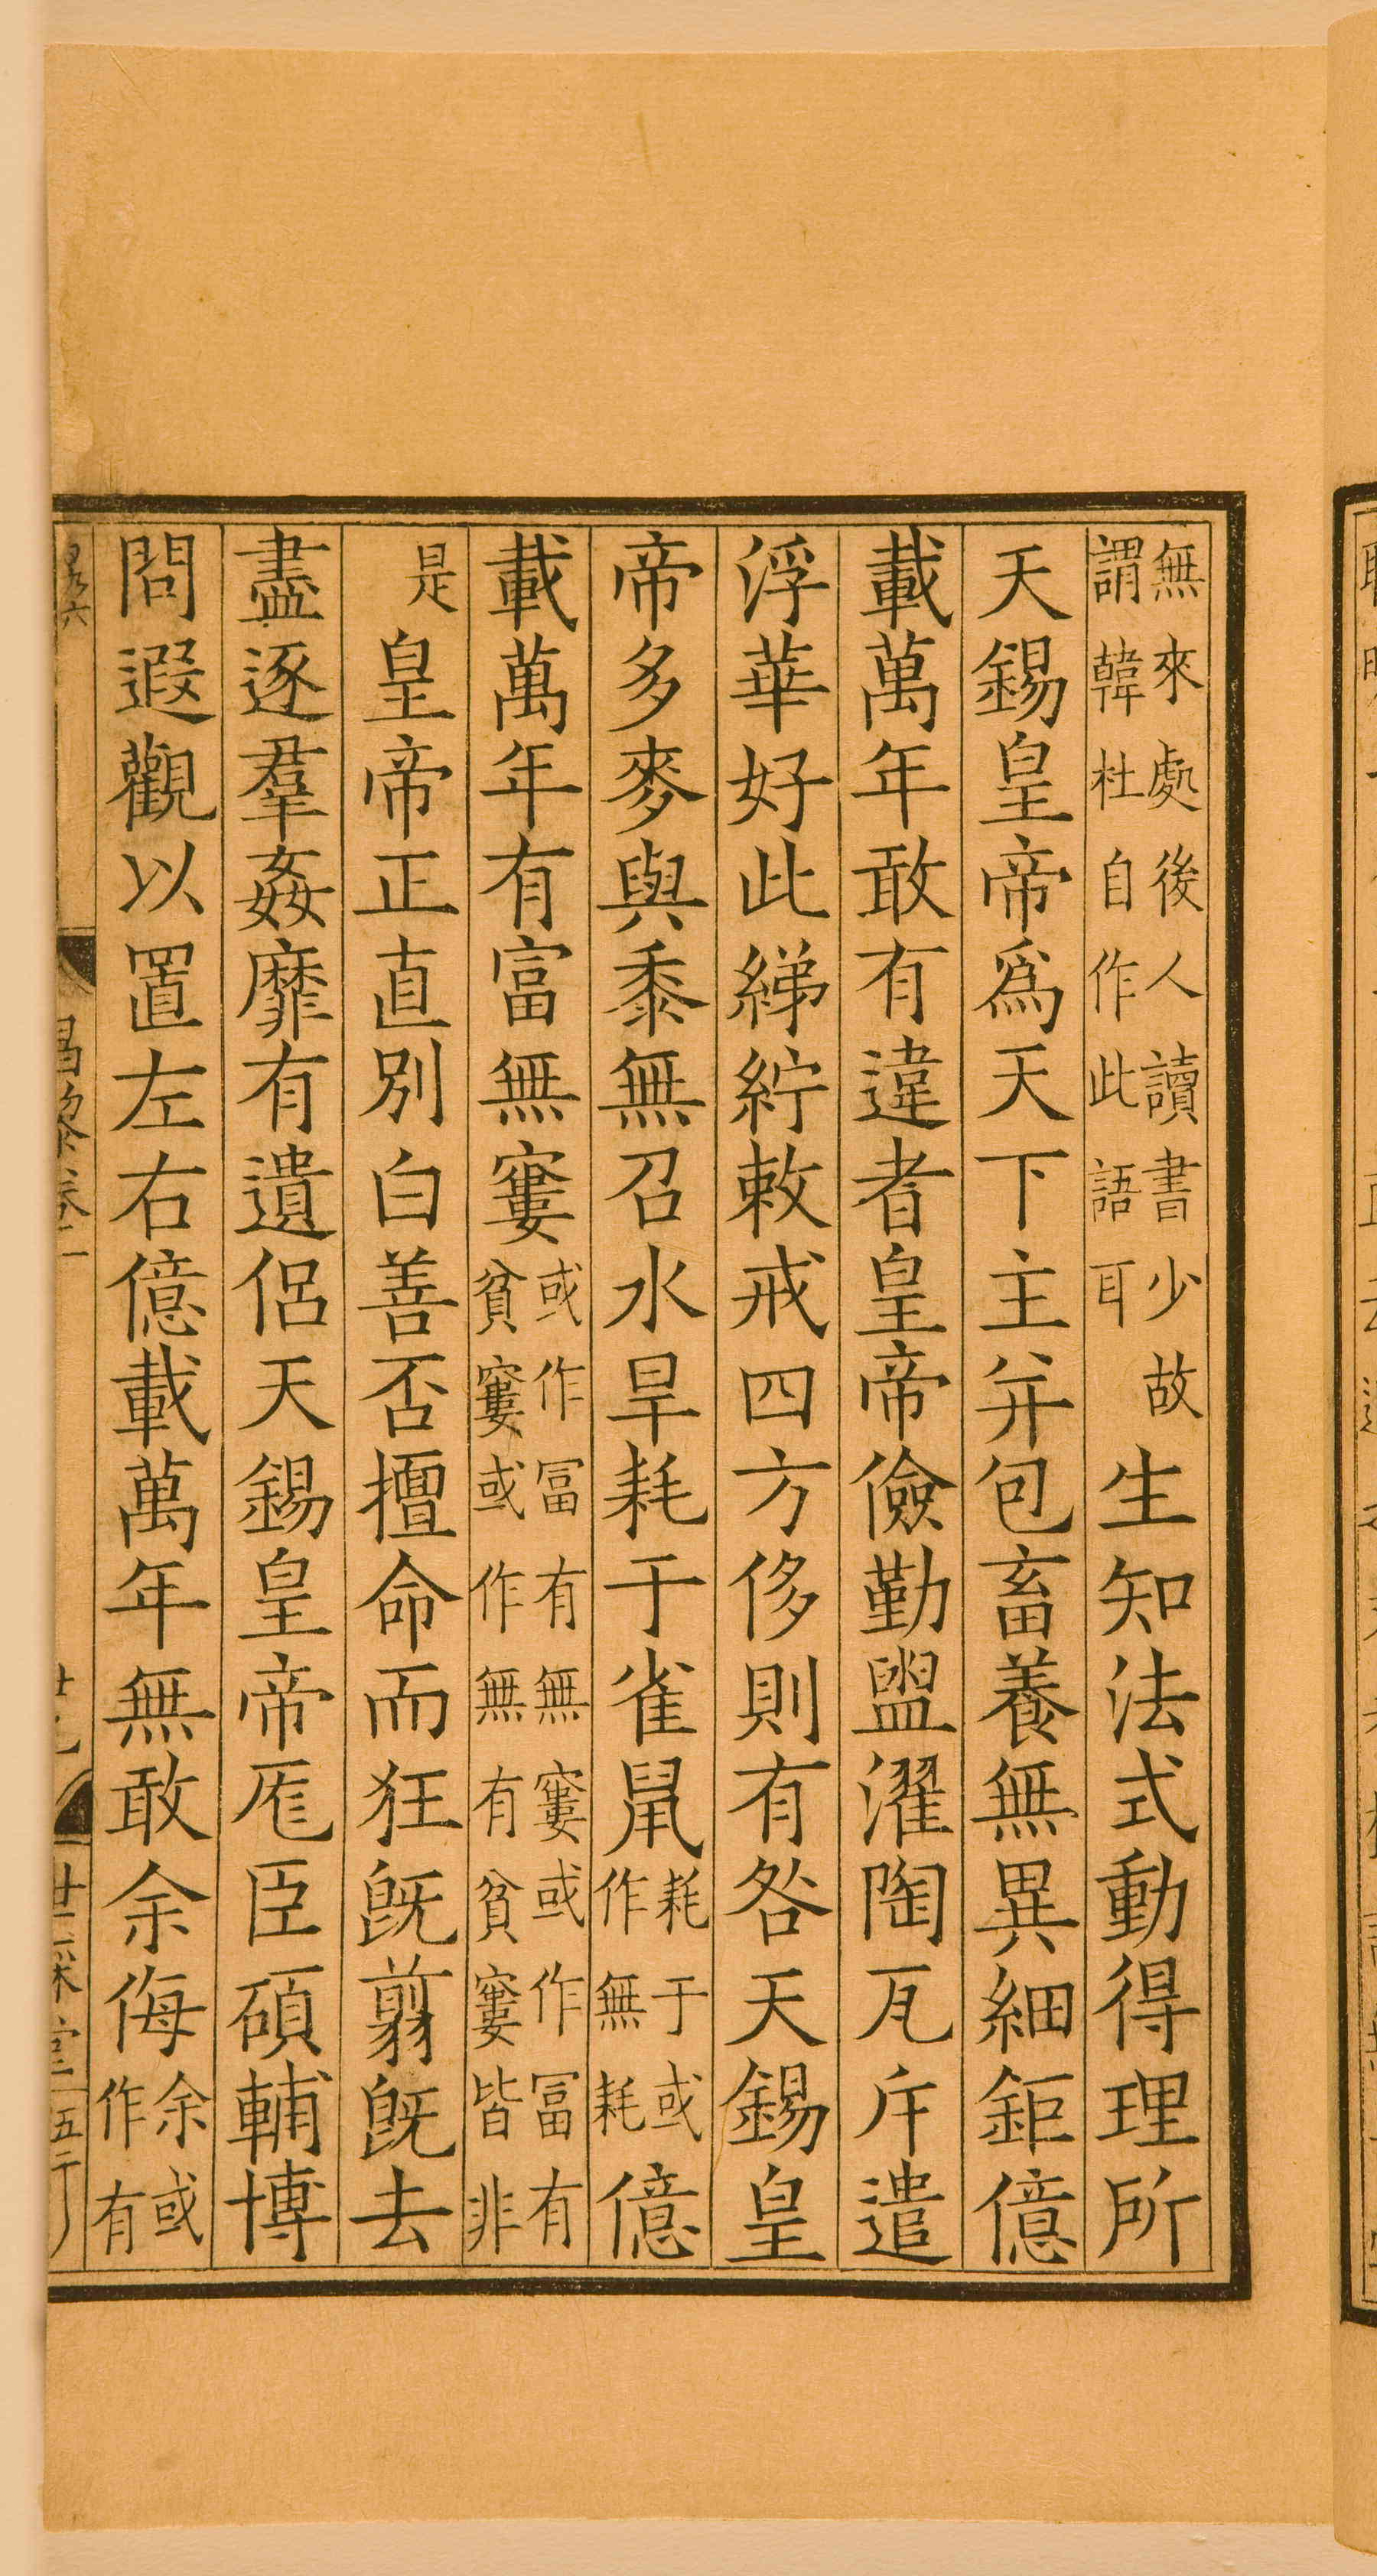 無來處後人讀書少故
謂韓杜自作此語耳
生知法式動得理所
天錫皇帝爲天下主并包畜養無異細鉅億
載萬年敢有違者皇帝儉勤盥濯陶瓦斥遣
浮華好此綈紵敕戒四方侈則有咎天錫皇
帝多麥與黍無召水旱耗于雀鼠
耗于或
作無耗
億
載萬年有富無窶
或作冨有無窶或作冨有
貧窶或作無有貧窶皆非
是
皇帝正直別白善否擅命而狂旣翦旣去
盡逐羣姦靡有遺侶天錫皇帝厖臣碩輔博
問遐觀以置左右億載萬年無敢余侮
余或
作有
昌黎卷一
世綵堂